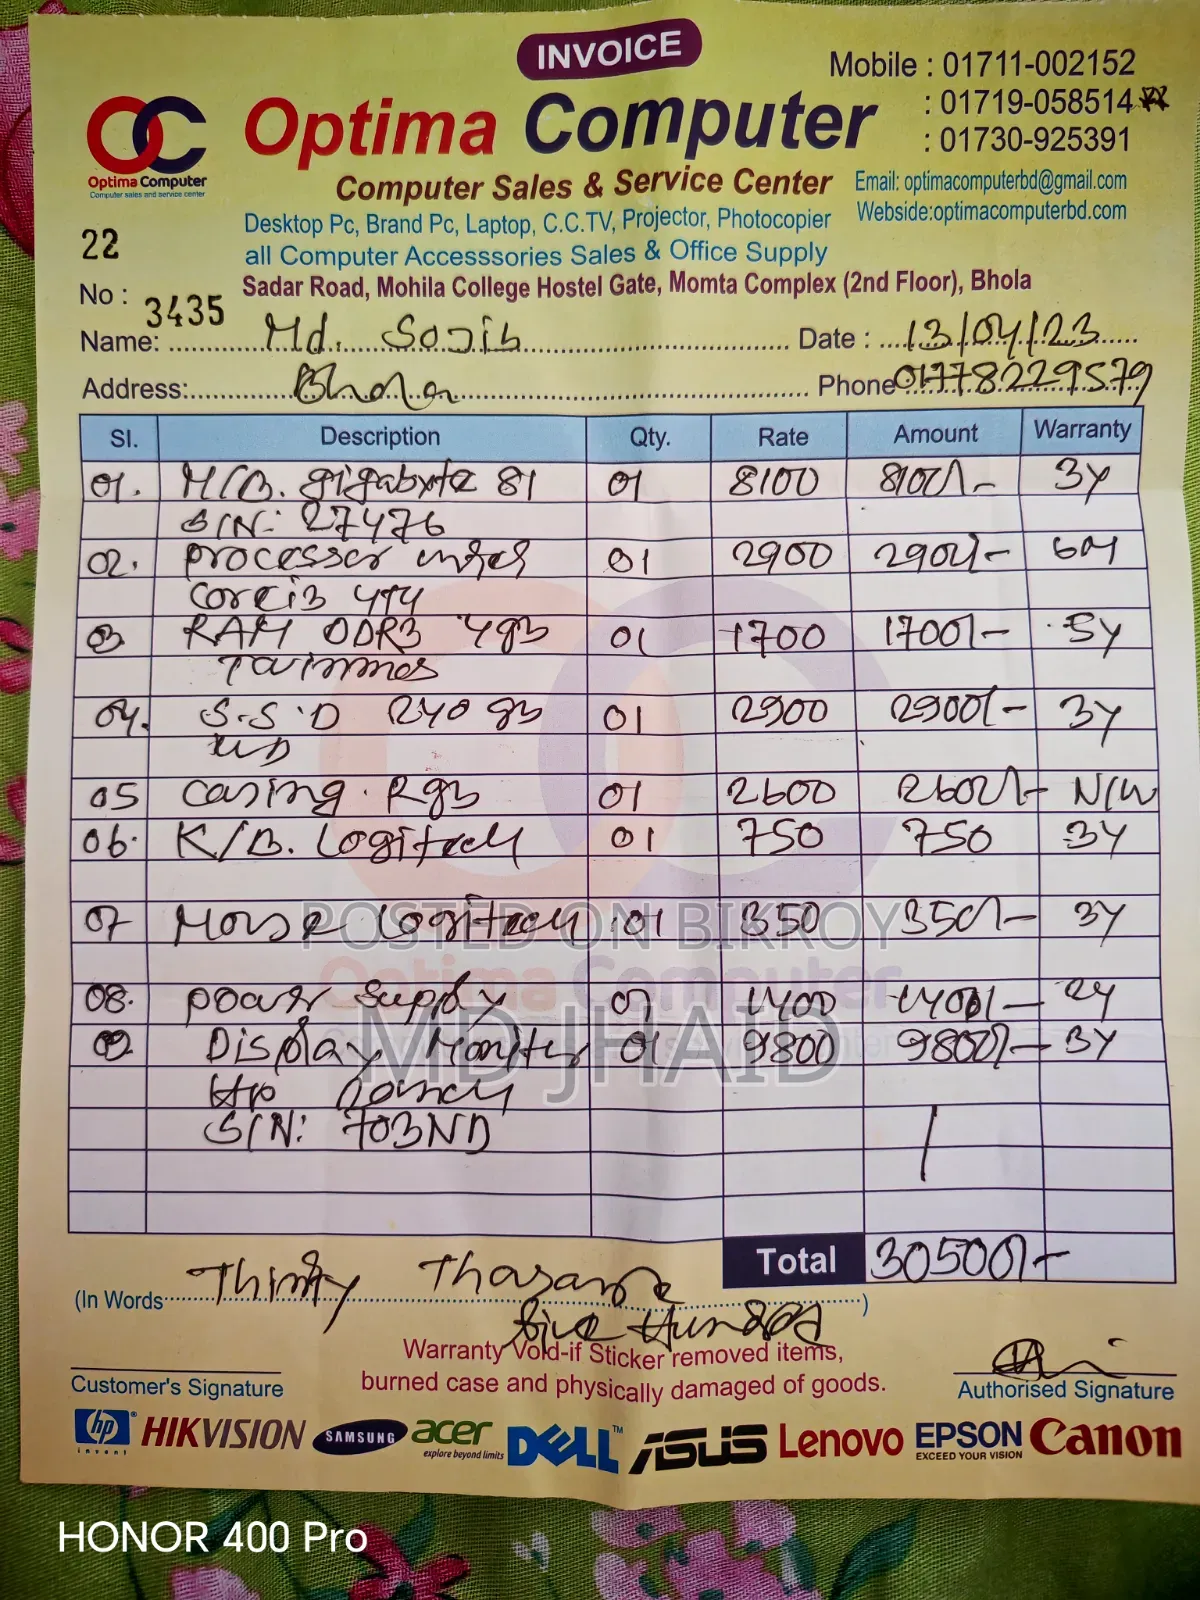 INVOICE
Mobile : 01711-002152
: 01719-058514
: 01730-925391
OC
Optima Computer
Computer sales and service center
Optima Computer
Computer Sales & Service Center
Email: optimacomputerbd@gmail.com
Webside:optimacomputerbd.com
Desktop Pc, Brand Pc, Laptop, C.C.TV, Projector, Photocopier
all Computer Accesssories Sales & Office Supply
Sadar Road, Mohila College Hostel Gate, Momta Complex (2nd Floor), Bhola
22
No : 3435
Name: Md. Sojib Date : 13/04/23
Address: Bhola Phone 01778229579
Sl. Description Qty. Rate Amount Warranty
01. M/B. gigabyte 81 01 8100 8100/- 3Y
S/N: 27476
02. processer intel 01 2900 2900/- 6M
corei3 4th
03 RAM DDR3 4gb 01 1700 1700/- 5Y
Twinmos
04. S.S.D 240 gb 01 2900 2900/- 3Y
05 casing Rgb 01 2600 2600/- N/W
06. K/B. Logitech 01 750 750 3Y
07 Mouse Logitech 01 350 350/- 3Y
08. power supply 01 1400 1400/- 2Y
09 Display Moniter 01 9800 9800/- 3Y
Hp
S/N: 703ND
Total 30500/-
(In Words Thirty Thousand )
five Hundred
Warranty Void-if Sticker removed items,
burned case and physically damaged of goods.
Customer's Signature
Authorised Signature
hp invent HIKVISION SAMSUNG acer explore beyond limits DELL™ ASUS Lenovo EPSON EXCEED YOUR VISION Canon
POSTED ON BIKROY
MD JHAID
HONOR 400 Pro